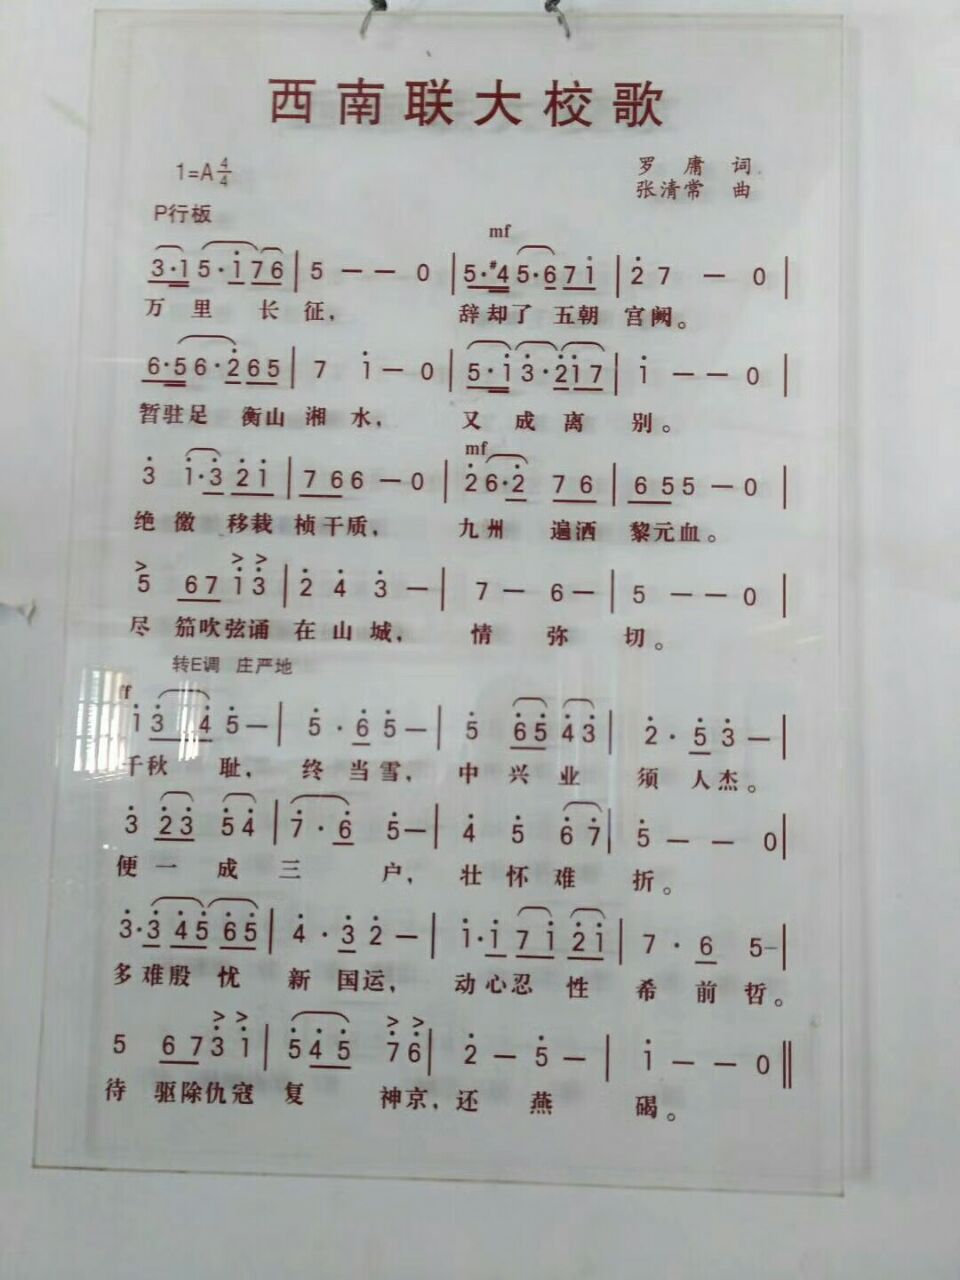 西南联大校歌
1=A 4/4
罗庸 词
张清常 曲
P行板
mf
3·1 5·1 7 6 | 5 — — 0 | 5·#4 5·6 7 1 | 2 7 — 0 |
万里 长征, 辞却了 五朝 宫阙。
6·5 6·2 6 5 | 7 1 — 0 | 5·1 3·2 1 7 | 1 — — 0 |
暂驻足 衡山 湘水, 又成离别。
mf
3 1·3 2 1 | 7 6 6 — 0 | 2 6·2 7 6 | 6 5 5 — 0 |
绝徼 移栽 桢干质, 九州 遍洒 黎元血。
> > >
5 6 7 1 3 | 2 4 3 — | 7 — 6 — | 5 — — 0 |
尽 笳吹弦诵 在山城, 情弥切。
转E调 庄严地
ff
1 3 4 5 — | 5·6 5 — | 5 6 5 4 3 | 2·5 3 — |
千秋耻, 终当雪, 中兴业 须人杰。
3 2 3 5 4 | 7·6 5 — | 4 5 6 7 | 5 — — 0 |
便一成三户, 壮怀难折。
3·3 4 5 6 5 | 4·3 2 — | 1·1 7 1 2 1 | 7·6 5 — |
多难殷忧 新国运, 动心忍性 希前哲。
> > > >
5 6 7 3 1 | 5 4 5 7 6 | 2 — 5 — | 1 — — 0 ‖
待 驱除仇寇 复神京, 还燕碣。